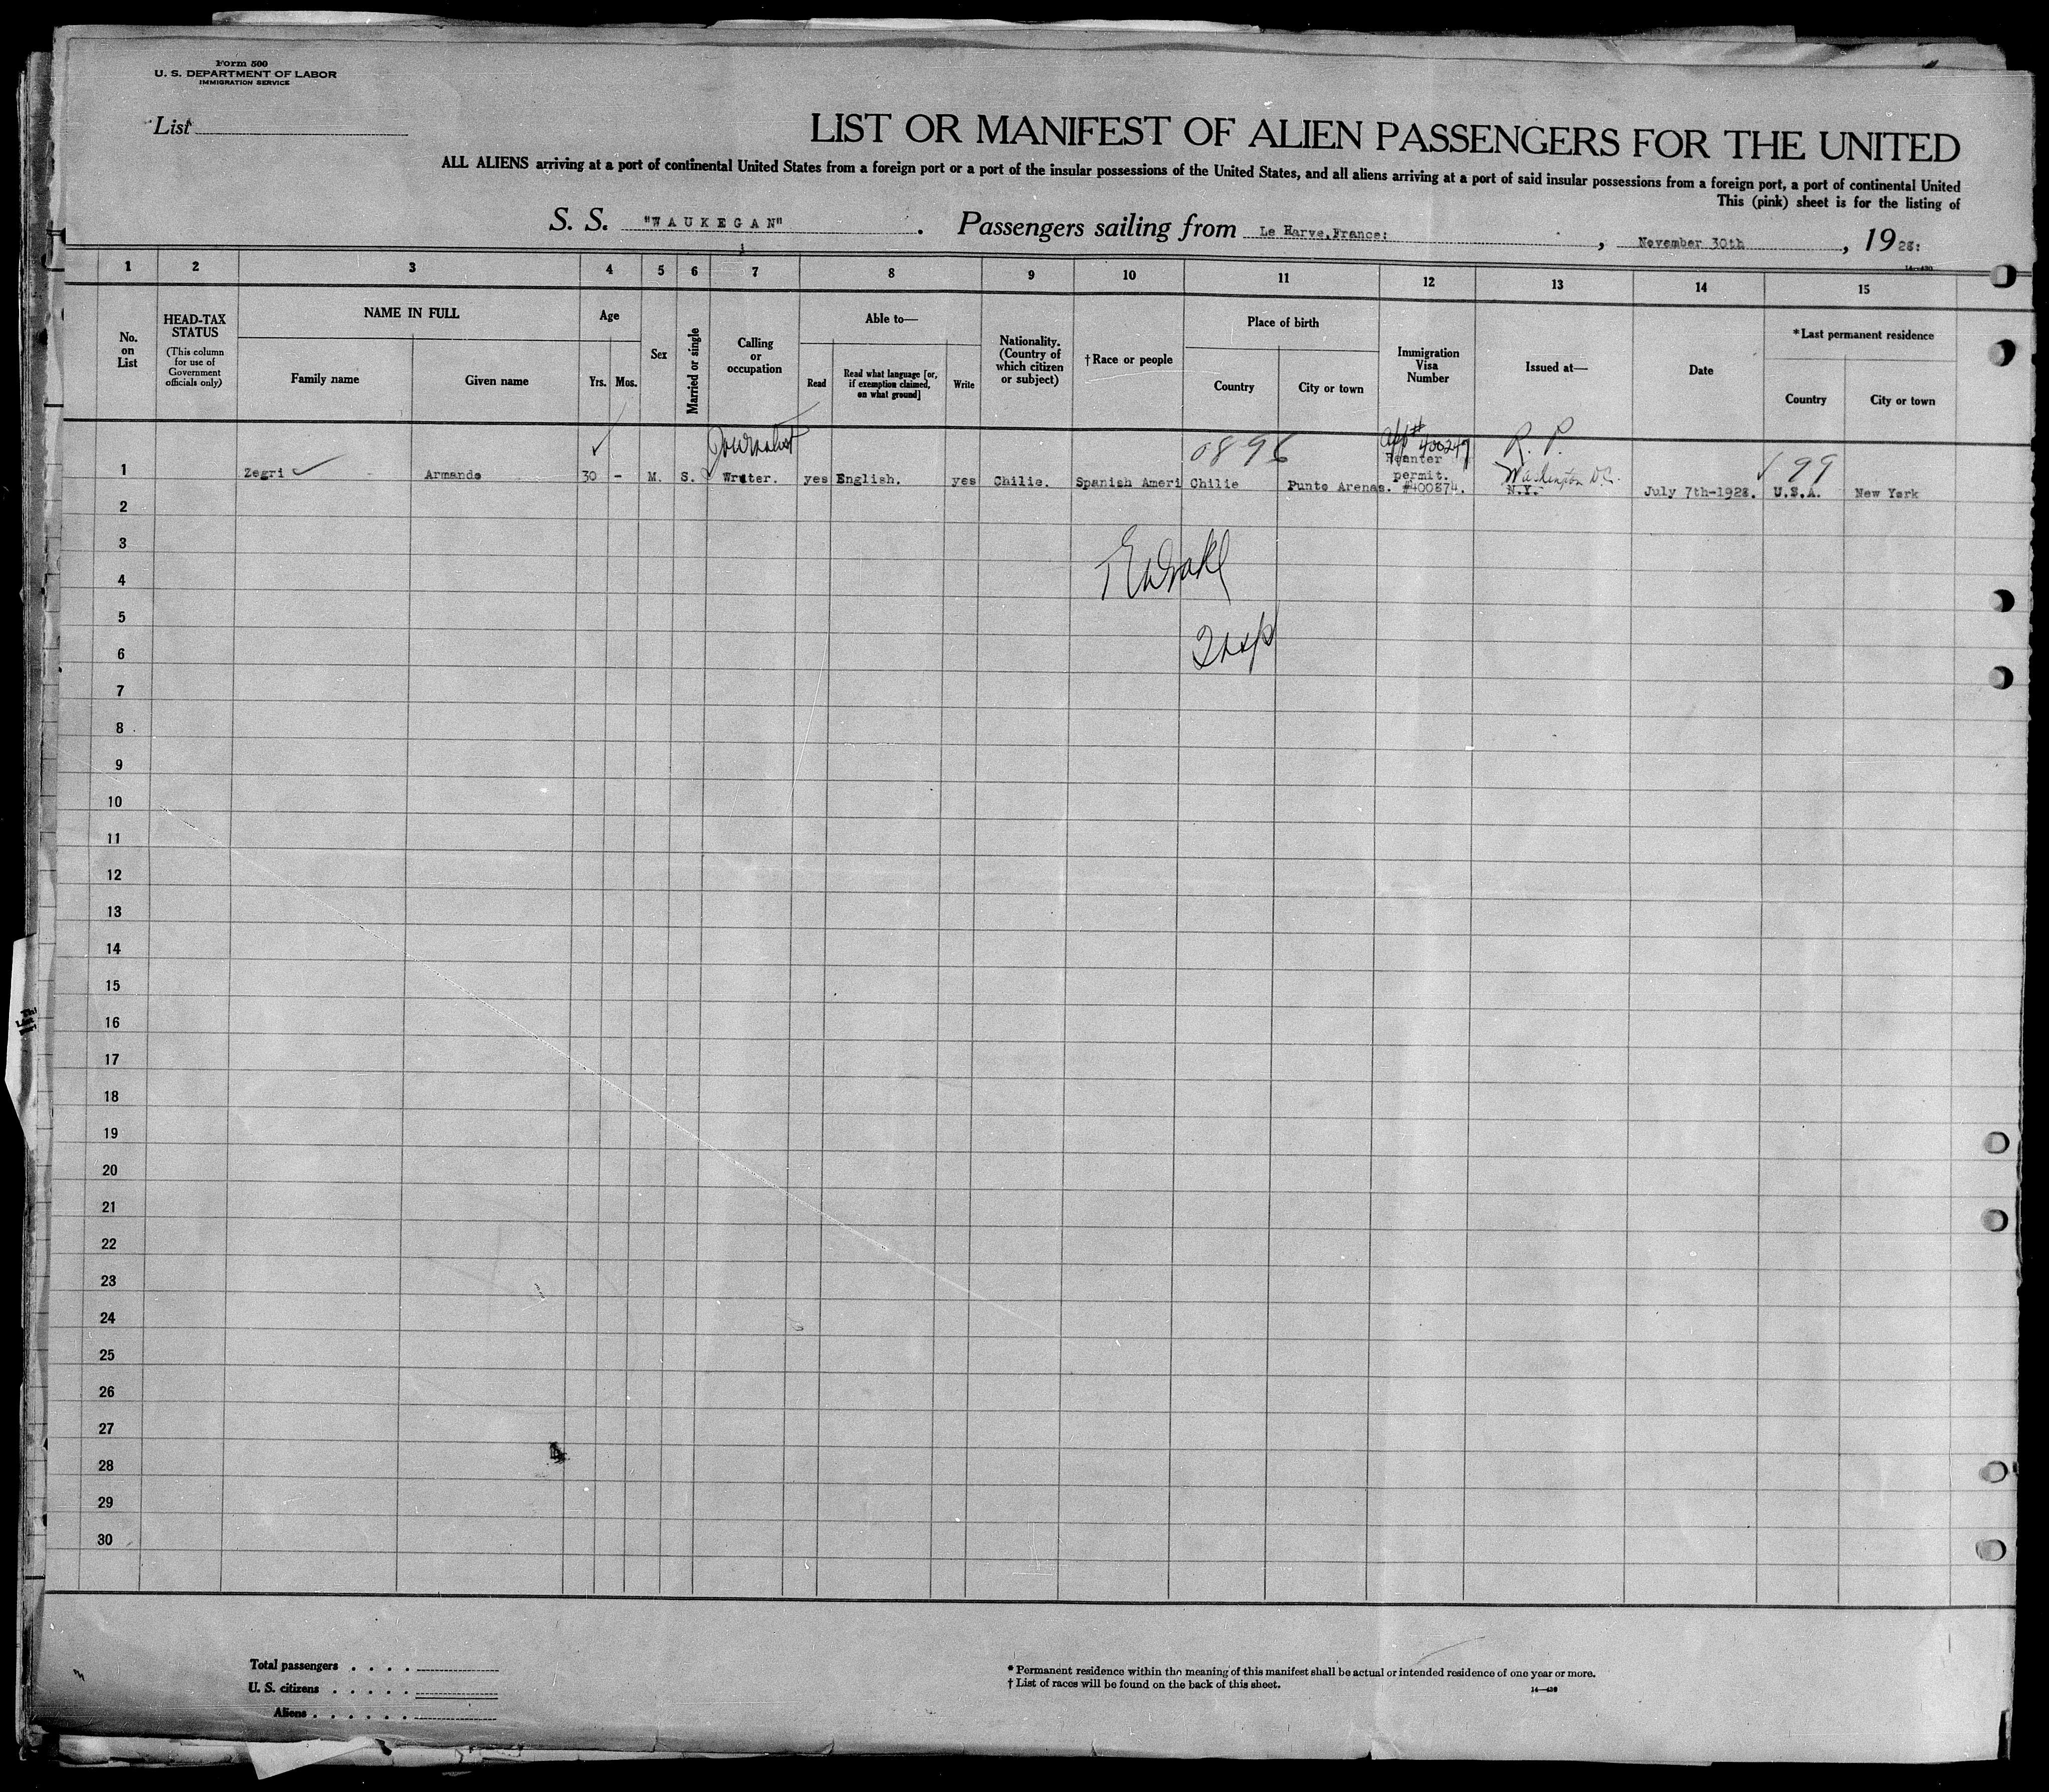 Form 500
U. S. DEPARTMENT OF LABOR
IMMIGRATION SERVICE
List
LIST OR MANIFEST OF ALIEN PASSENGERS FOR THE UNITED
ALL ALIENS arriving at a port of continental United States from a foreign port or a port of the insular possessions of the United States, and all aliens arriving at a port of said insular possessions from a foreign port, a port of continental United
This (pink) sheet is for the listing of
S. S. "WAUKEGAN" . Passengers sailing from Le Harve,France: , November 30th , 1928:
1 2 3 4 5 6 7 8 9 10 11 12 13 14 15
No. on List
HEAD-TAX STATUS
(This column for use of Government officials only)
NAME IN FULL
Family name
Given name
Age
Yrs. Mos.
Sex
Married or single
Calling or occupation
Able to—
Read
Read what language [or, if exemption claimed, on what ground]
Write
Nationality. (Country of which citizen or subject)
†Race or people
Place of birth
Country
City or town
Immigration Visa Number
Issued at—
Date
*Last permanent residence
Country
City or town
Journalist
0896
app# 400247
R. P.
Washington D.C.
99
1 Zegri Armando 30 - M. S. Writer. yes English. yes Chilie. Spanish Ameri Chilie Punto Arenas. Reenter permit. #400874. N.Y. July 7th-1928. U.S.A. New York
2
3
4
5
6
7
8
9
10
11
12
13
14
15
16
17
18
19
20
21
22
23
24
25
26
27
28
29
30
Total passengers . . . .
U. S. citizens . . . . .
Aliens . . . . . .
* Permanent residence within the meaning of this manifest shall be actual or intended residence of one year or more.
† List of races will be found on the back of this sheet.